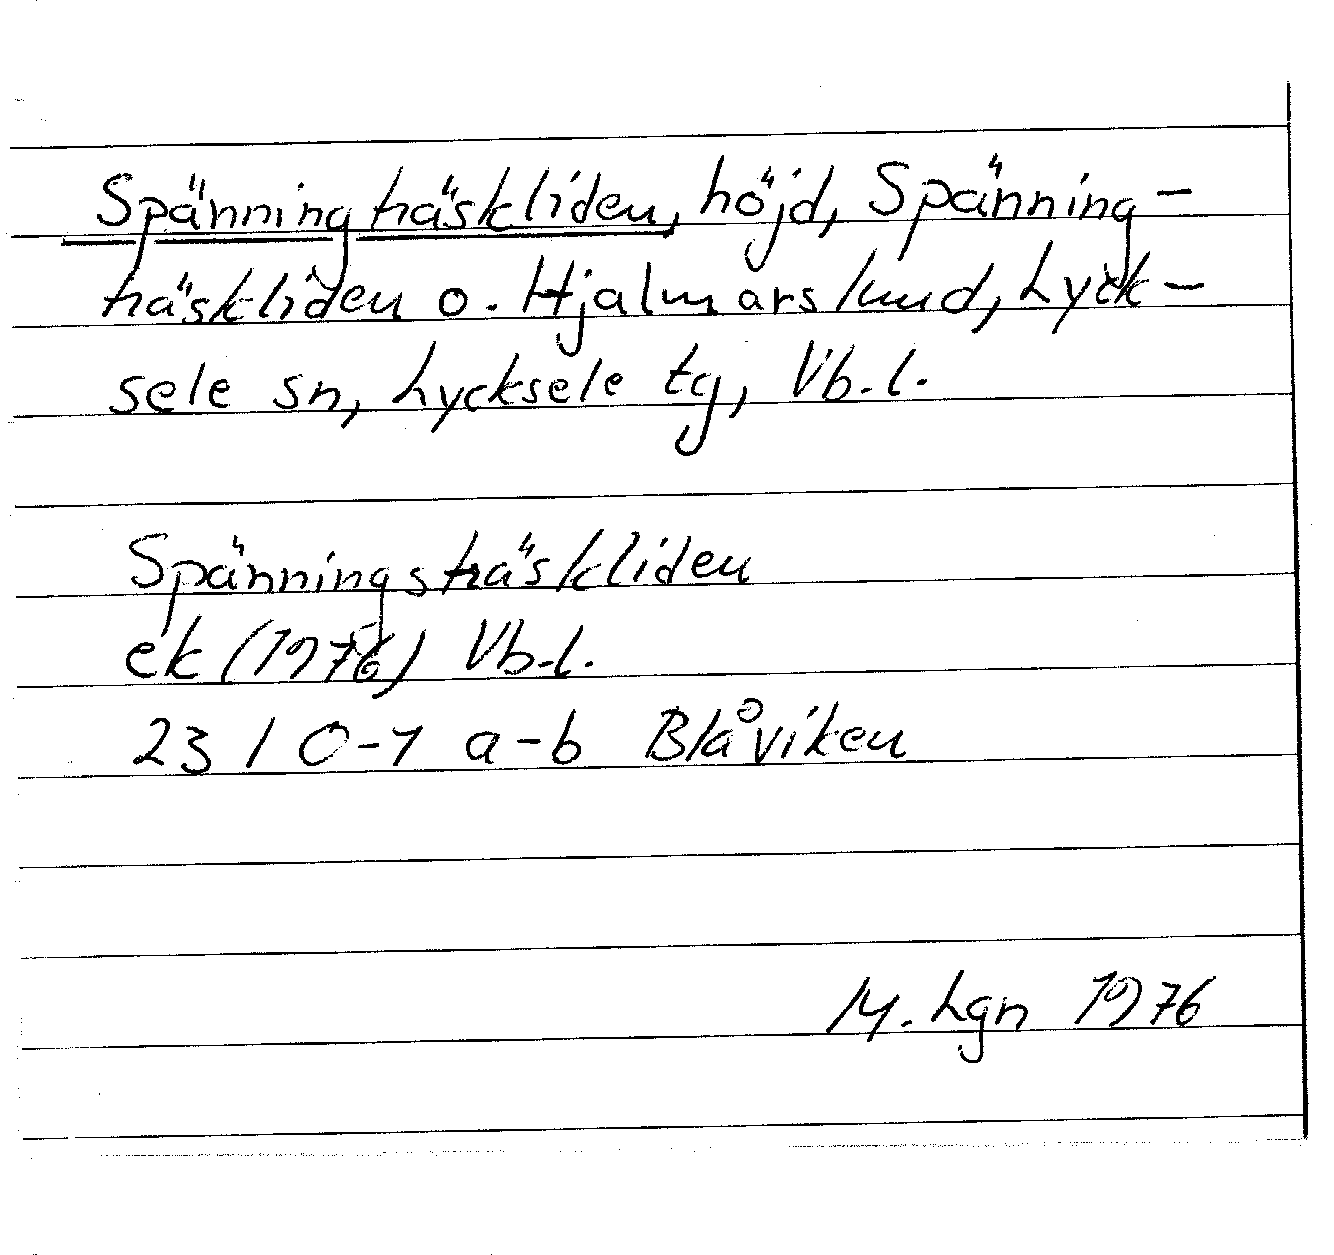 Spänningträskliden, höjd, Spänning-
träskliden o. Hjalmarslund, Lyck-
sele sn, Lycksele tg, Vb.l.
Spänningsträskliden
ek (1976) Vb.l.
23 I 0-1 a-b Blåviken
M. Lgn 1976